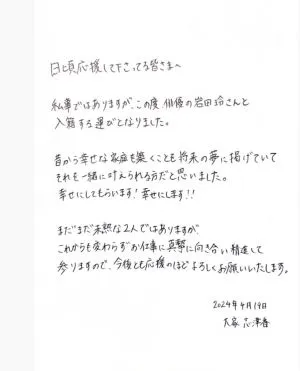 日頃応援して下さってる皆さまへ
私事ではありますが、この度 俳優の岩田玲さんと
入籍する運びとなりました。
昔から幸せな家庭を築くことも将来の夢に掲げていて
それも一緒に叶えられる方だと思いました。
幸せにしてもらいます!幸せにします!!
まだまだ未熟な2人ではありますが、
これからも変わらずお仕事に真摯に向き合い精進して
参りますので、今後とも応援のほどよろしくお願いいたします。
2024年4月19日
大家 志津香